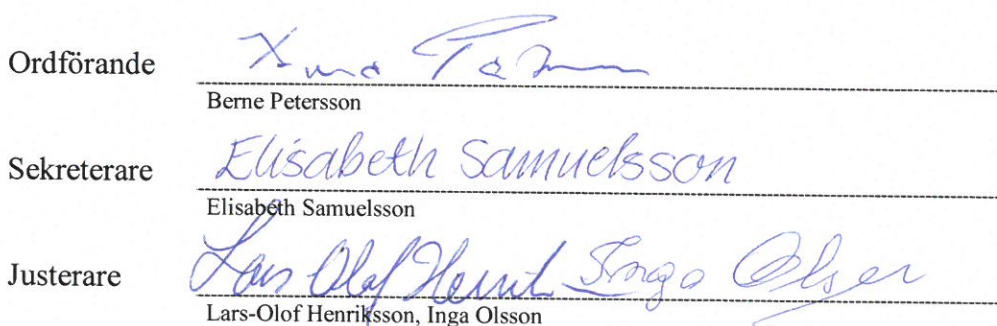 Ordförande
Berne Petersson
Sekreterare Elisabeth Samuelsson
Elisabeth Samuelsson
Justerare Lars Olof Henrik Inga Olsson
Lars-Olof Henriksson, Inga Olsson